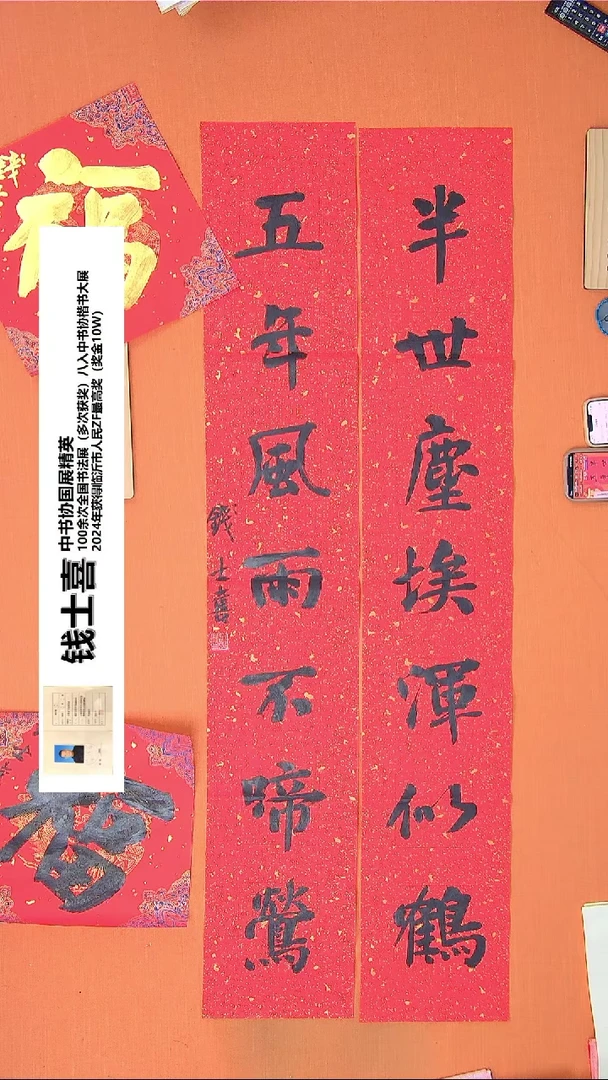 半世塵埃渾似鶴
五年風雨不啼鶯
錢士喜
福
福
钱士喜
中书协国展精英
100余次全国书法展（多次获奖）八入中书协楷书大展
2024年获得临沂市人民ZF最高奖（奖金10W）